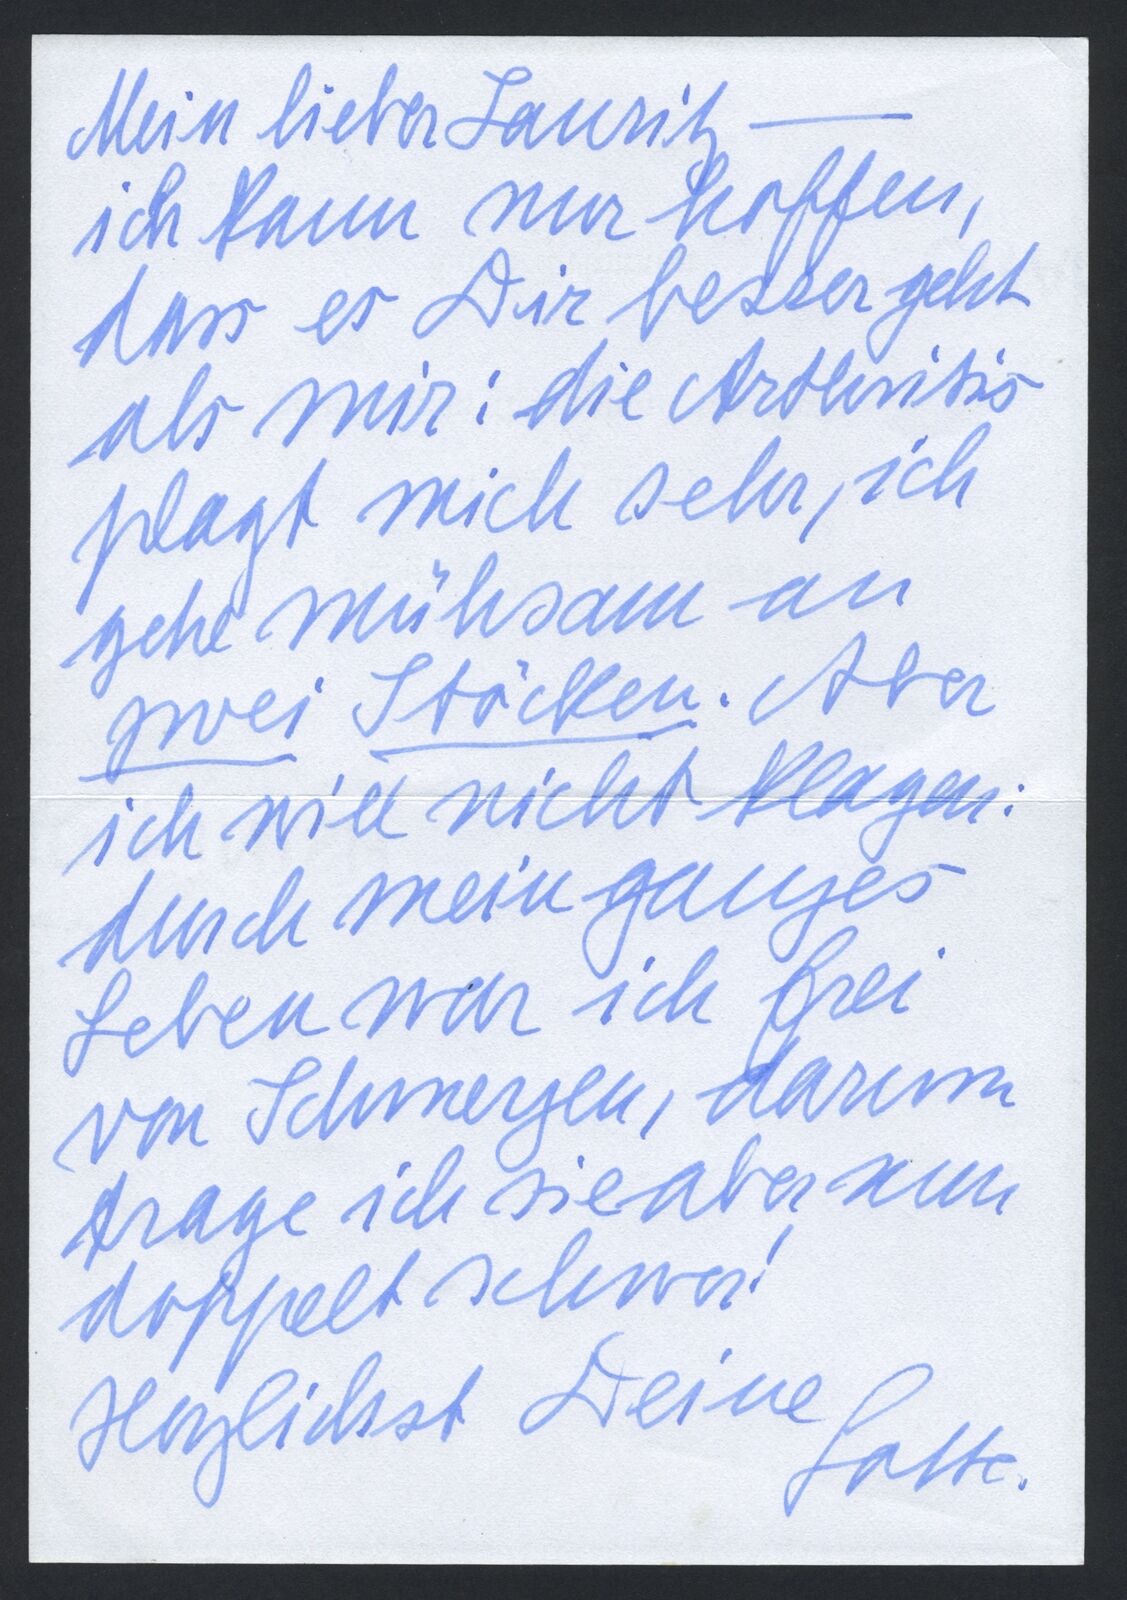 Mein lieber Lauritz —
ich kann nur hoffen,
dass es Dir besser geht
als mir: die Arthritis
plagt mich sehr, ich
gehe mühsam an
zwei Stöcken. Aber
ich will nicht klagen:
durch mein ganzes
Leben war ich frei
von Schmerzen, darum
trage ich sie aber nun
doppelt schwer!
Herzlichst Deine
Lotte.